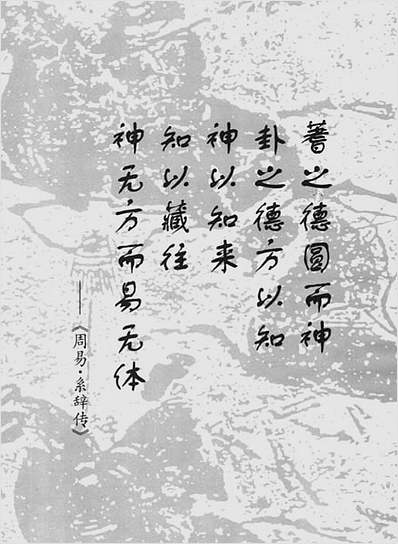 蓍之德圆而神
卦之德方以知
神以知来
知以藏往
神无方而易无体
——《周易·系辞传》